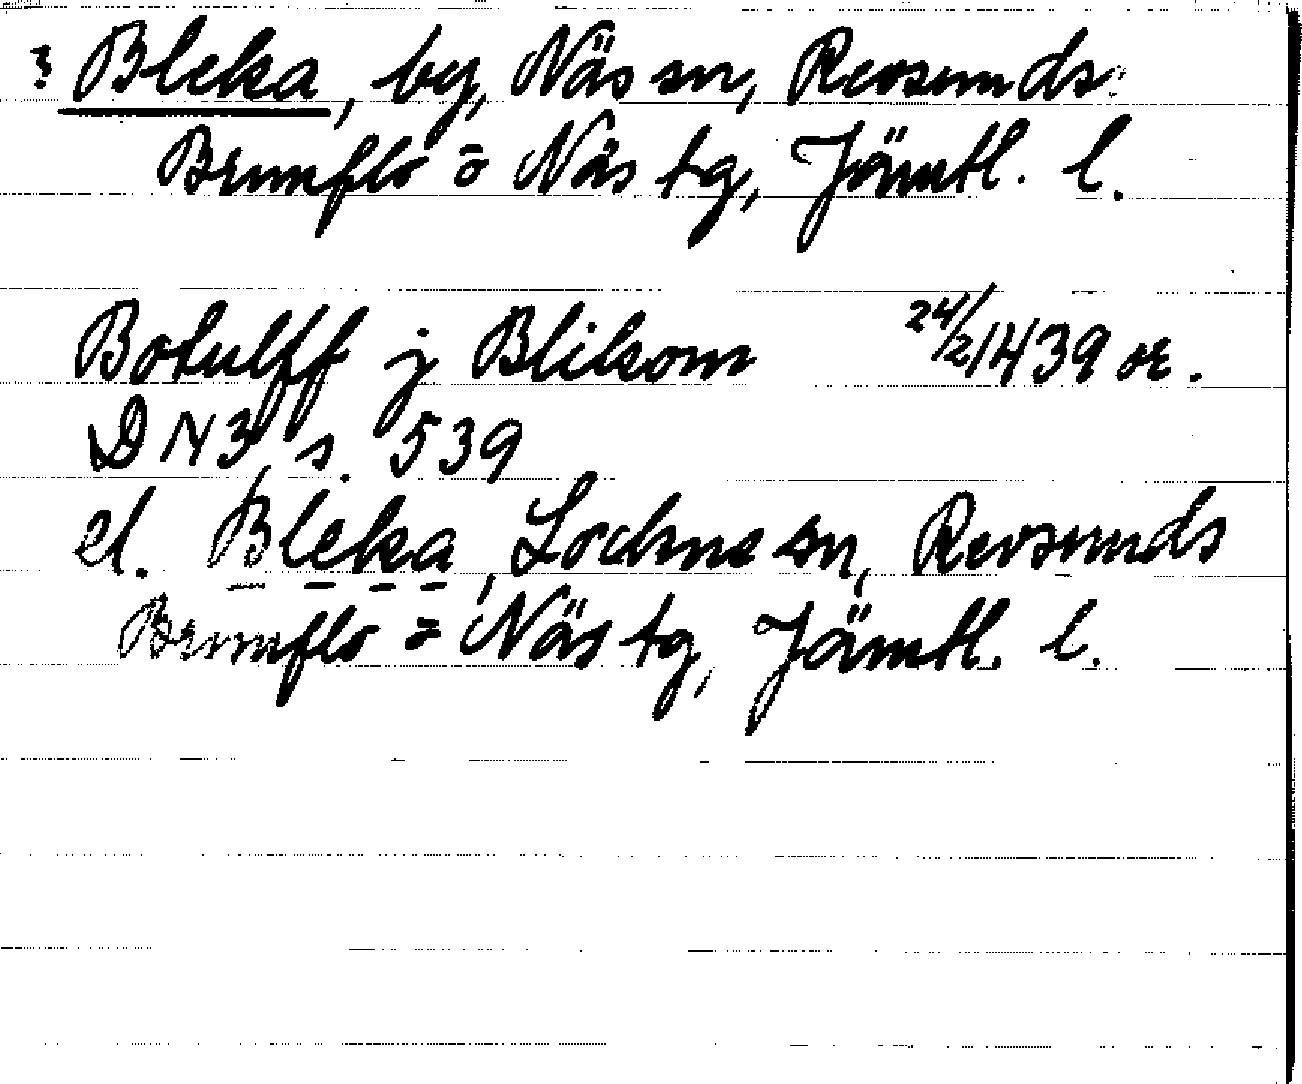 ? Bleka, by, Näs sn, Revsunds
Brunflo = Näs tg, Jämtl. l.
Botulff j Blikom 24/2 1439 or.
DN 3, s. 539
el. Bleka, Lockne sn, Revsunds
Brunflo = Näs tg, Jämtl. l.